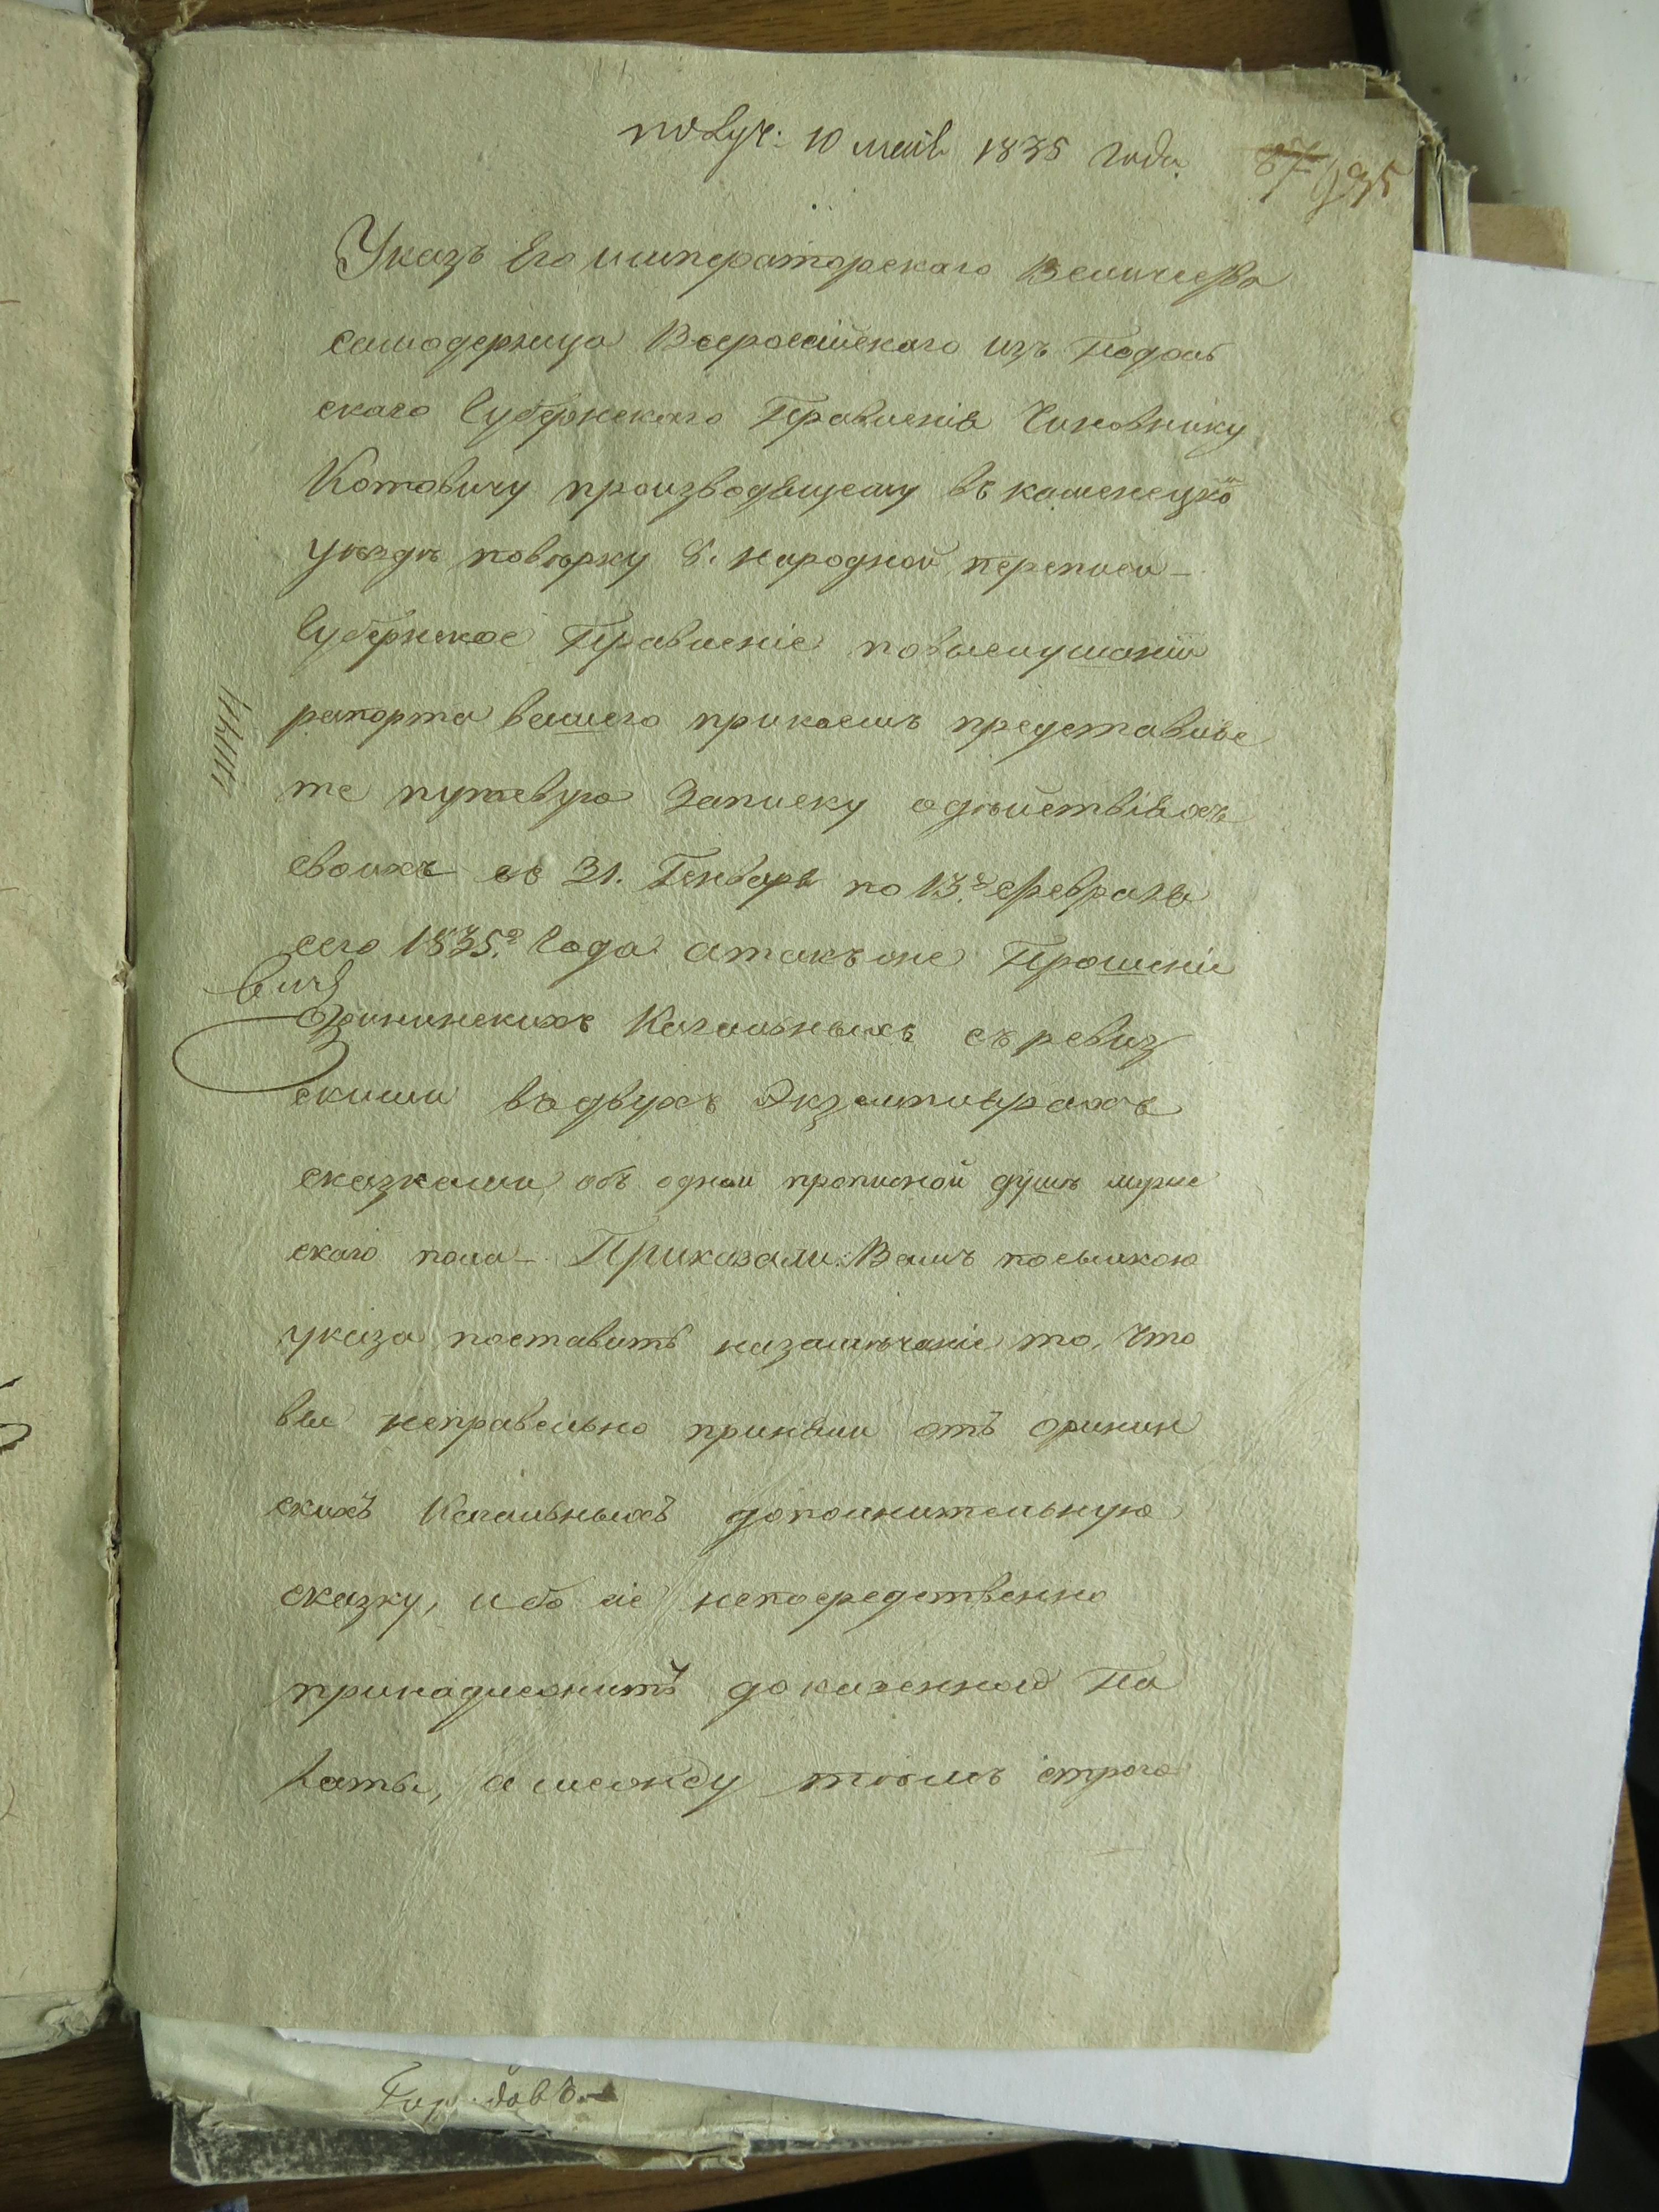 получ: 10 маія 1835 года.
87 935
Указъ Его императорскаго Величества
самодержца Всеросійскаго изъ Подоль
скаго Губернскаго Правленія Чиновнику
Котовичу производящему въ каменецкомъ
уѣздѣ повѣрку 8. народной переписи –
Губернское Правленіе повыслушаніи
рапорта вашего прикоемъ представляе
те путевую записку одѣйствіяхъ
своихъ съ 31. Генваря по 13е февраля
сего 1835го Года атакъже Прошеніе
Орининскихъ Кагальныхъ съ ревиз
скими въдвухъ Экземплярахъ
сказками, объ одной прописной душѣ мужес
скаго пола – Приказали: Вамъ посылкою
указа поставить назамѣчаніе то, что
вы неправельно приняли отъ оринин
скихъ Кагальныхъ дополнительную
сказку, ибо сіе непосредственно
принадлежитъ доказенной Па
латы, амежду тѣмъ строго